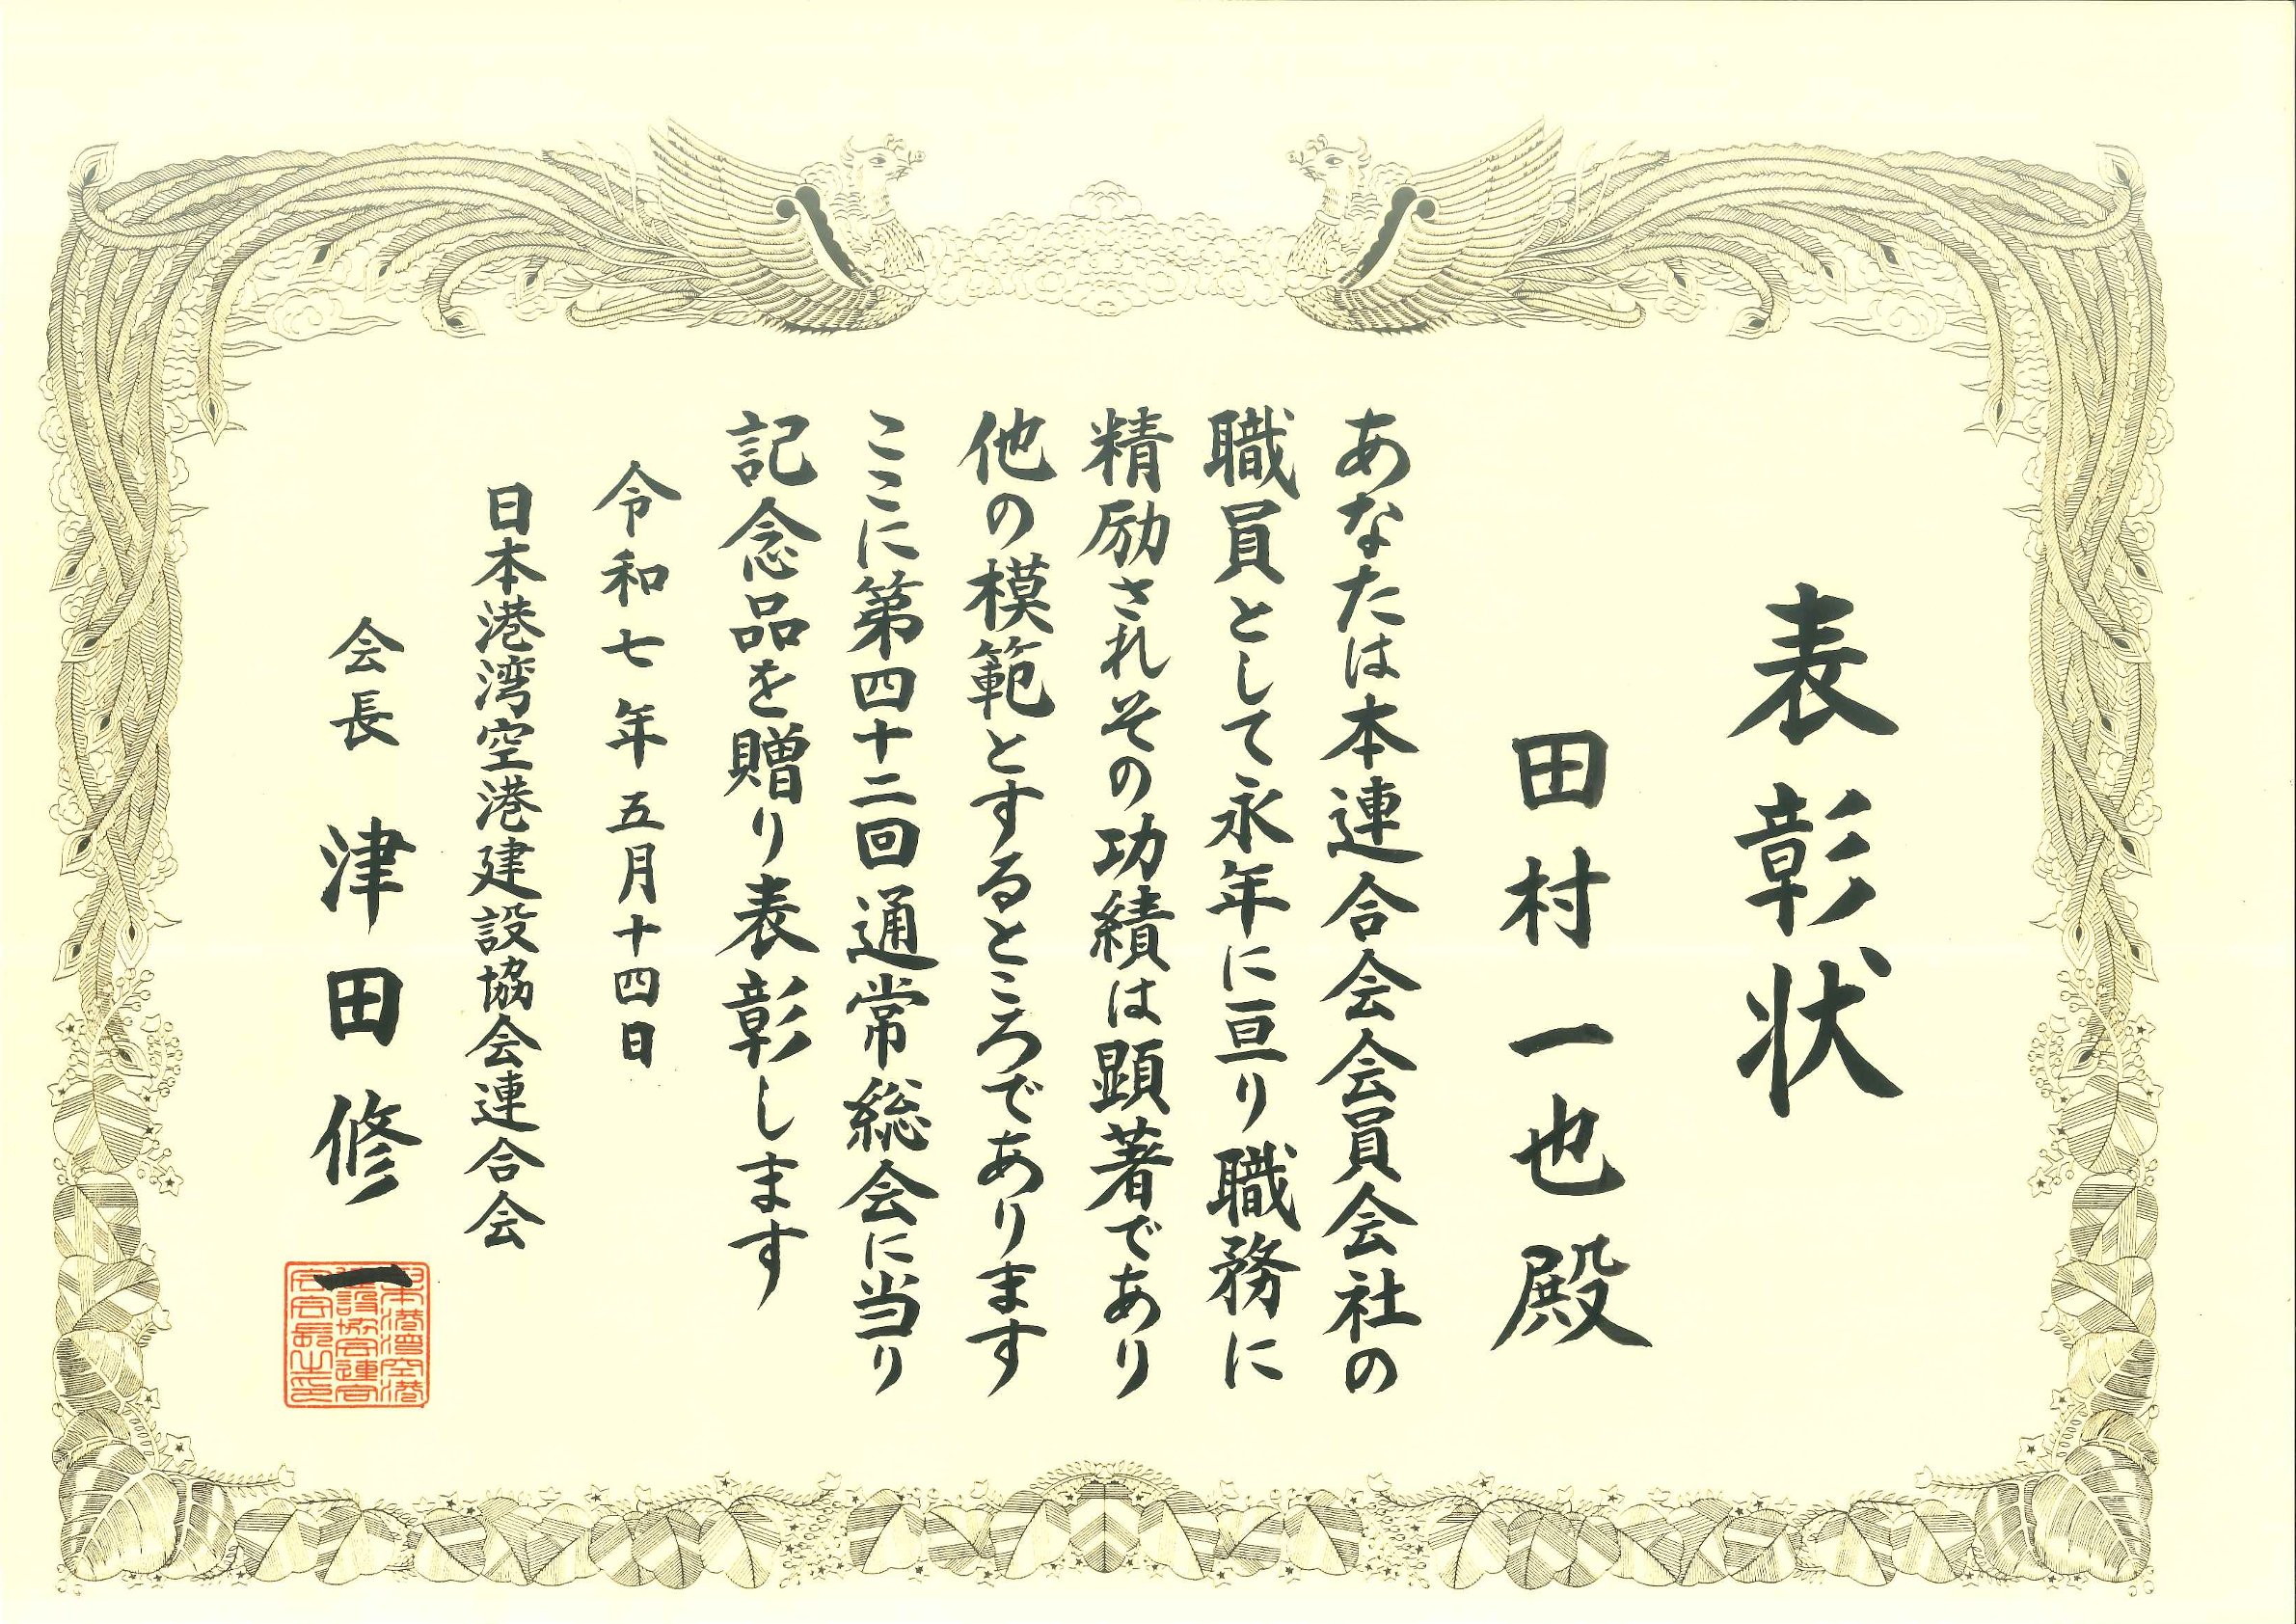 表彰状
田村一也殿
あなたは本連合会会員会社の
職員として永年に亘り職務に
精励されその功績は顕著であり
他の模範とするところであります
ここに第四十二回通常総会に当り
記念品を贈り表彰します
令和七年五月十四日
日本港湾空港建設協会連合会
会長 津田修一
日本港湾空港
建設協会連合
会会長之印